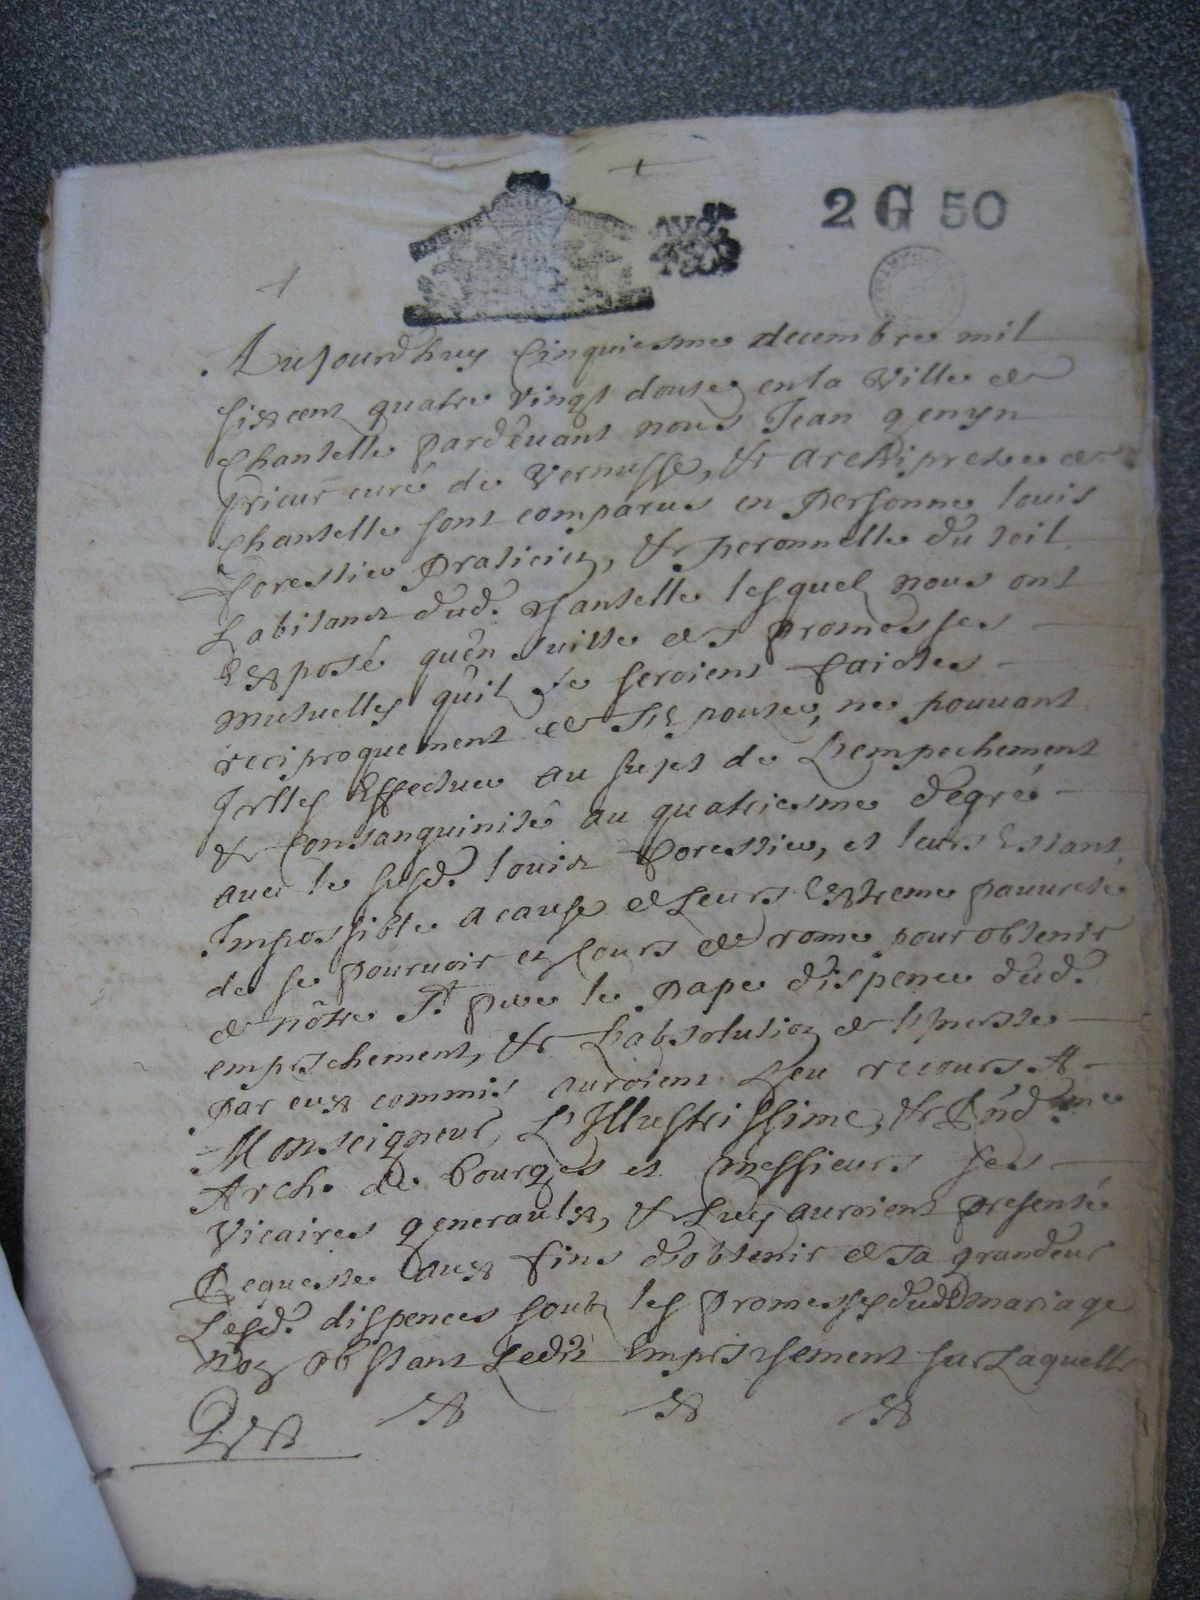 2 G 50
Aujourdhuy cinquiesme decembre mil
six cent quatre vingt douze en la Ville de
Chantelle pardevant nous Jean genyn
prieur curé de Vernusse, & archiprestre de
Chantelle sont comparus en personne louis
forestier praticien, & peronnelle du teil
habitans dud. Chantelle lesquel nous ont
Exposé qu'en suitte des promesses
mutuelles qu'il se seroient faictes
reciproquement de s'Epouser, ne pouvant
Icelles Effectuer au sujet de L'empechement
de Consanguinité au quatriesme degré
avec le susd. louis forestier, et leurs Estant
Impossible a cause de Leurs Extreme pauvreté
de se pourvoir en Cours de rome pour obtenir
de nôtre St. pere le pape dispence dud.
empeschement, & L'absolution de l'Inceste
par eux commis auroient Heu recours A
Monseigneur, L'Illustrissime, & Rnd.me
Arch. de Bourges et messieurs ses
Vicaires generaulx, & Luy auroient presenté
Requeste aux fins d'obtenir de sa grandeur
Lesd. dispences soubz les promesses dud mariage
Non obstant Ledit Empeschement sur Laquelle